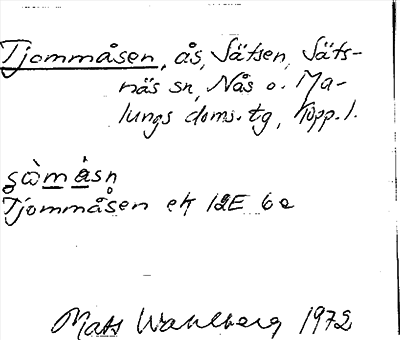 Tjommåsen, ås, Sätsen, Säts-
näs sn, Nås o. Ma-
lungs doms. tg, Kopp. l.
Tjommåsen ek 12E 6e
Mats Wahlberg 1972